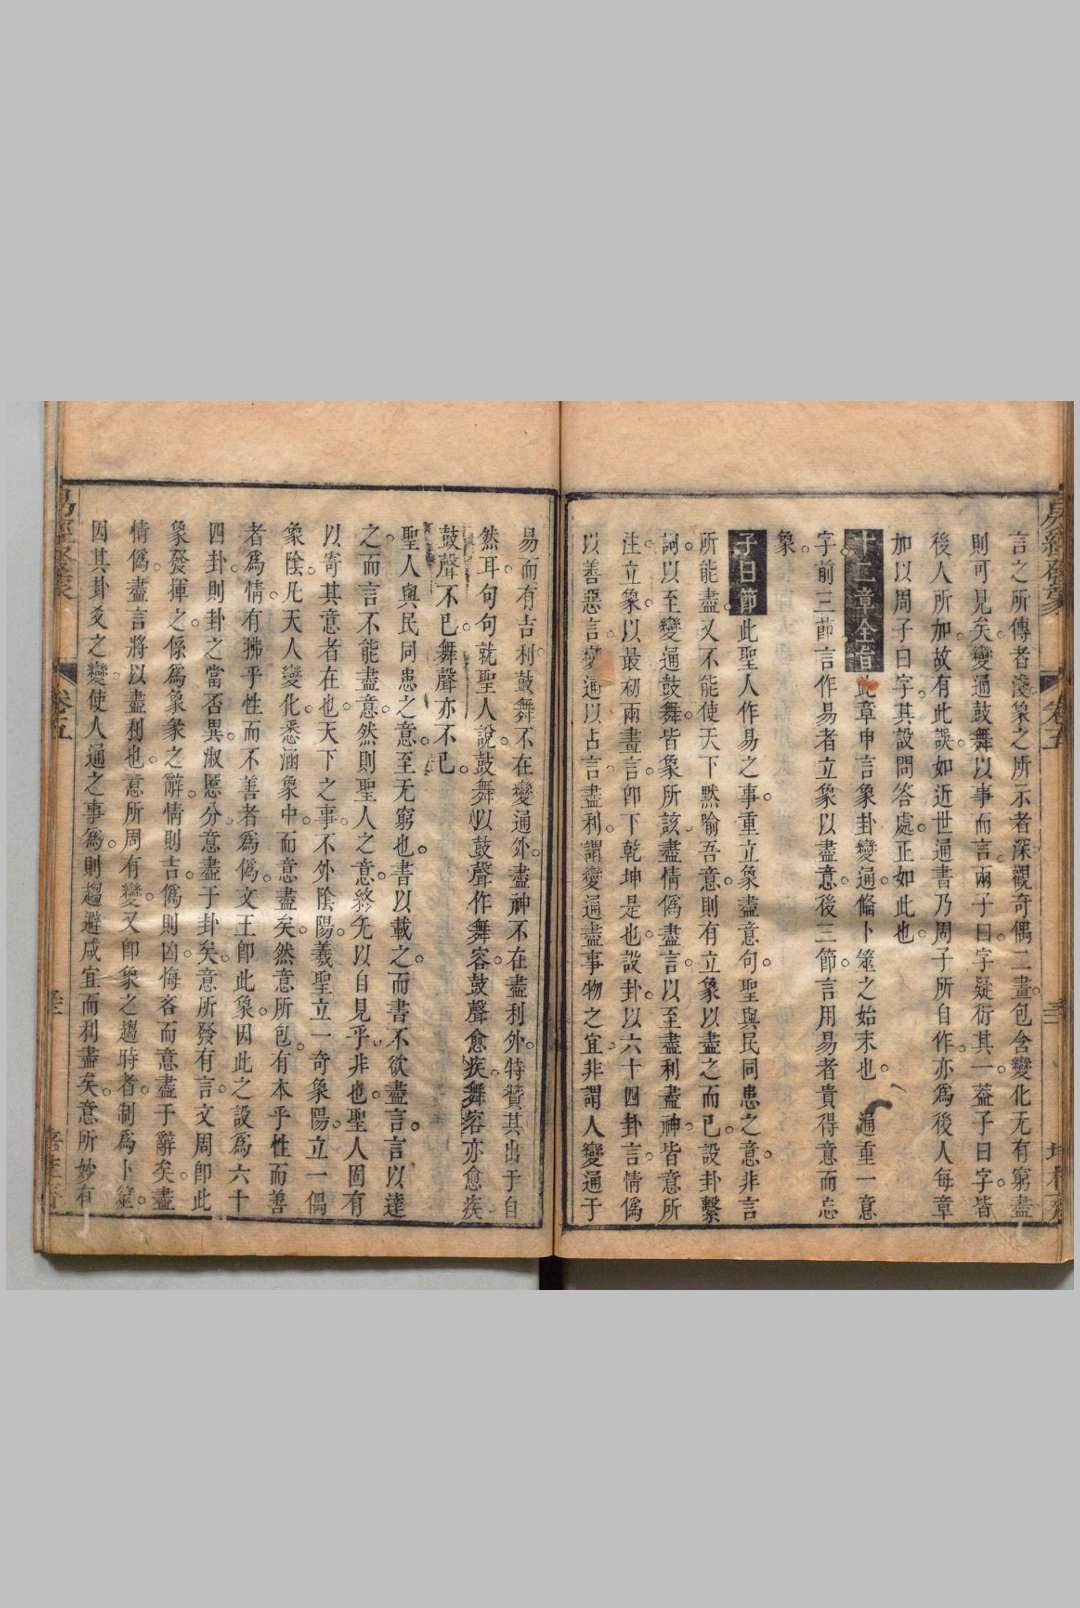 言之所傳者淺象之所示者深觀奇偶二畫包含變化无有窮盡
則可見矣變通鼓舞以事而言兩子曰字疑衍其一葢子曰字皆
後人所加故有此誤如近世通書乃周子所自作亦為後人每章
加以周子曰字其設問答處正如此也
十二章全旨此章申言象卦變通偹卜筮之始末也 通重一意
字前三節言作易者立象以盡意後三節言用易者貴得意而忘
象
子曰節此聖人作易之事重立象盡意句聖與民同患之意非言
所能盡又不能使天下黙喻吾意則有立象以盡之而已設卦繫
詞以至變通鼓舞皆象所該盡情偽盡言以至盡利盡神皆意所
注立象以最初兩畫言卽下乾坤是也設卦以六十四卦言情偽
以善惡言變通以占言盡利謂變通盡事物之宜非謂人變通于
易而有吉利鼓舞不在變通外盡神不在盡利外特贊其出于自
然耳句句就聖人說鼓舞以鼓聲作舞容鼓聲愈疾舞容亦愈疾
鼓聲不已舞聲亦不已
聖人與民同患之意至无窮也書以載之而書不欲盡言言以達
之而言不能盡意然則聖人之意終无以自見乎非也聖人固有
以寄其意者在也天下之事不外陰陽羲聖立一奇象陽立一偶
象陰凡天人變化悉涵象中而意盡矣然意所包有本乎性而善
者為情有拂乎性而不善者為偽文王卽此象因此之設為六十
四卦則卦之當否異淑慝分意盡于卦矣意所發有言文周卽此
象發揮之係為象彖之辭情則吉偽則凶悔吝而意盡于辭矣盡
情偽盡言將以盡利也意所周有變又卽象之趨時者制為卜筮
因其卦爻之變使人通之事為則趨避咸宜而利盡矣意所妙有
卷五